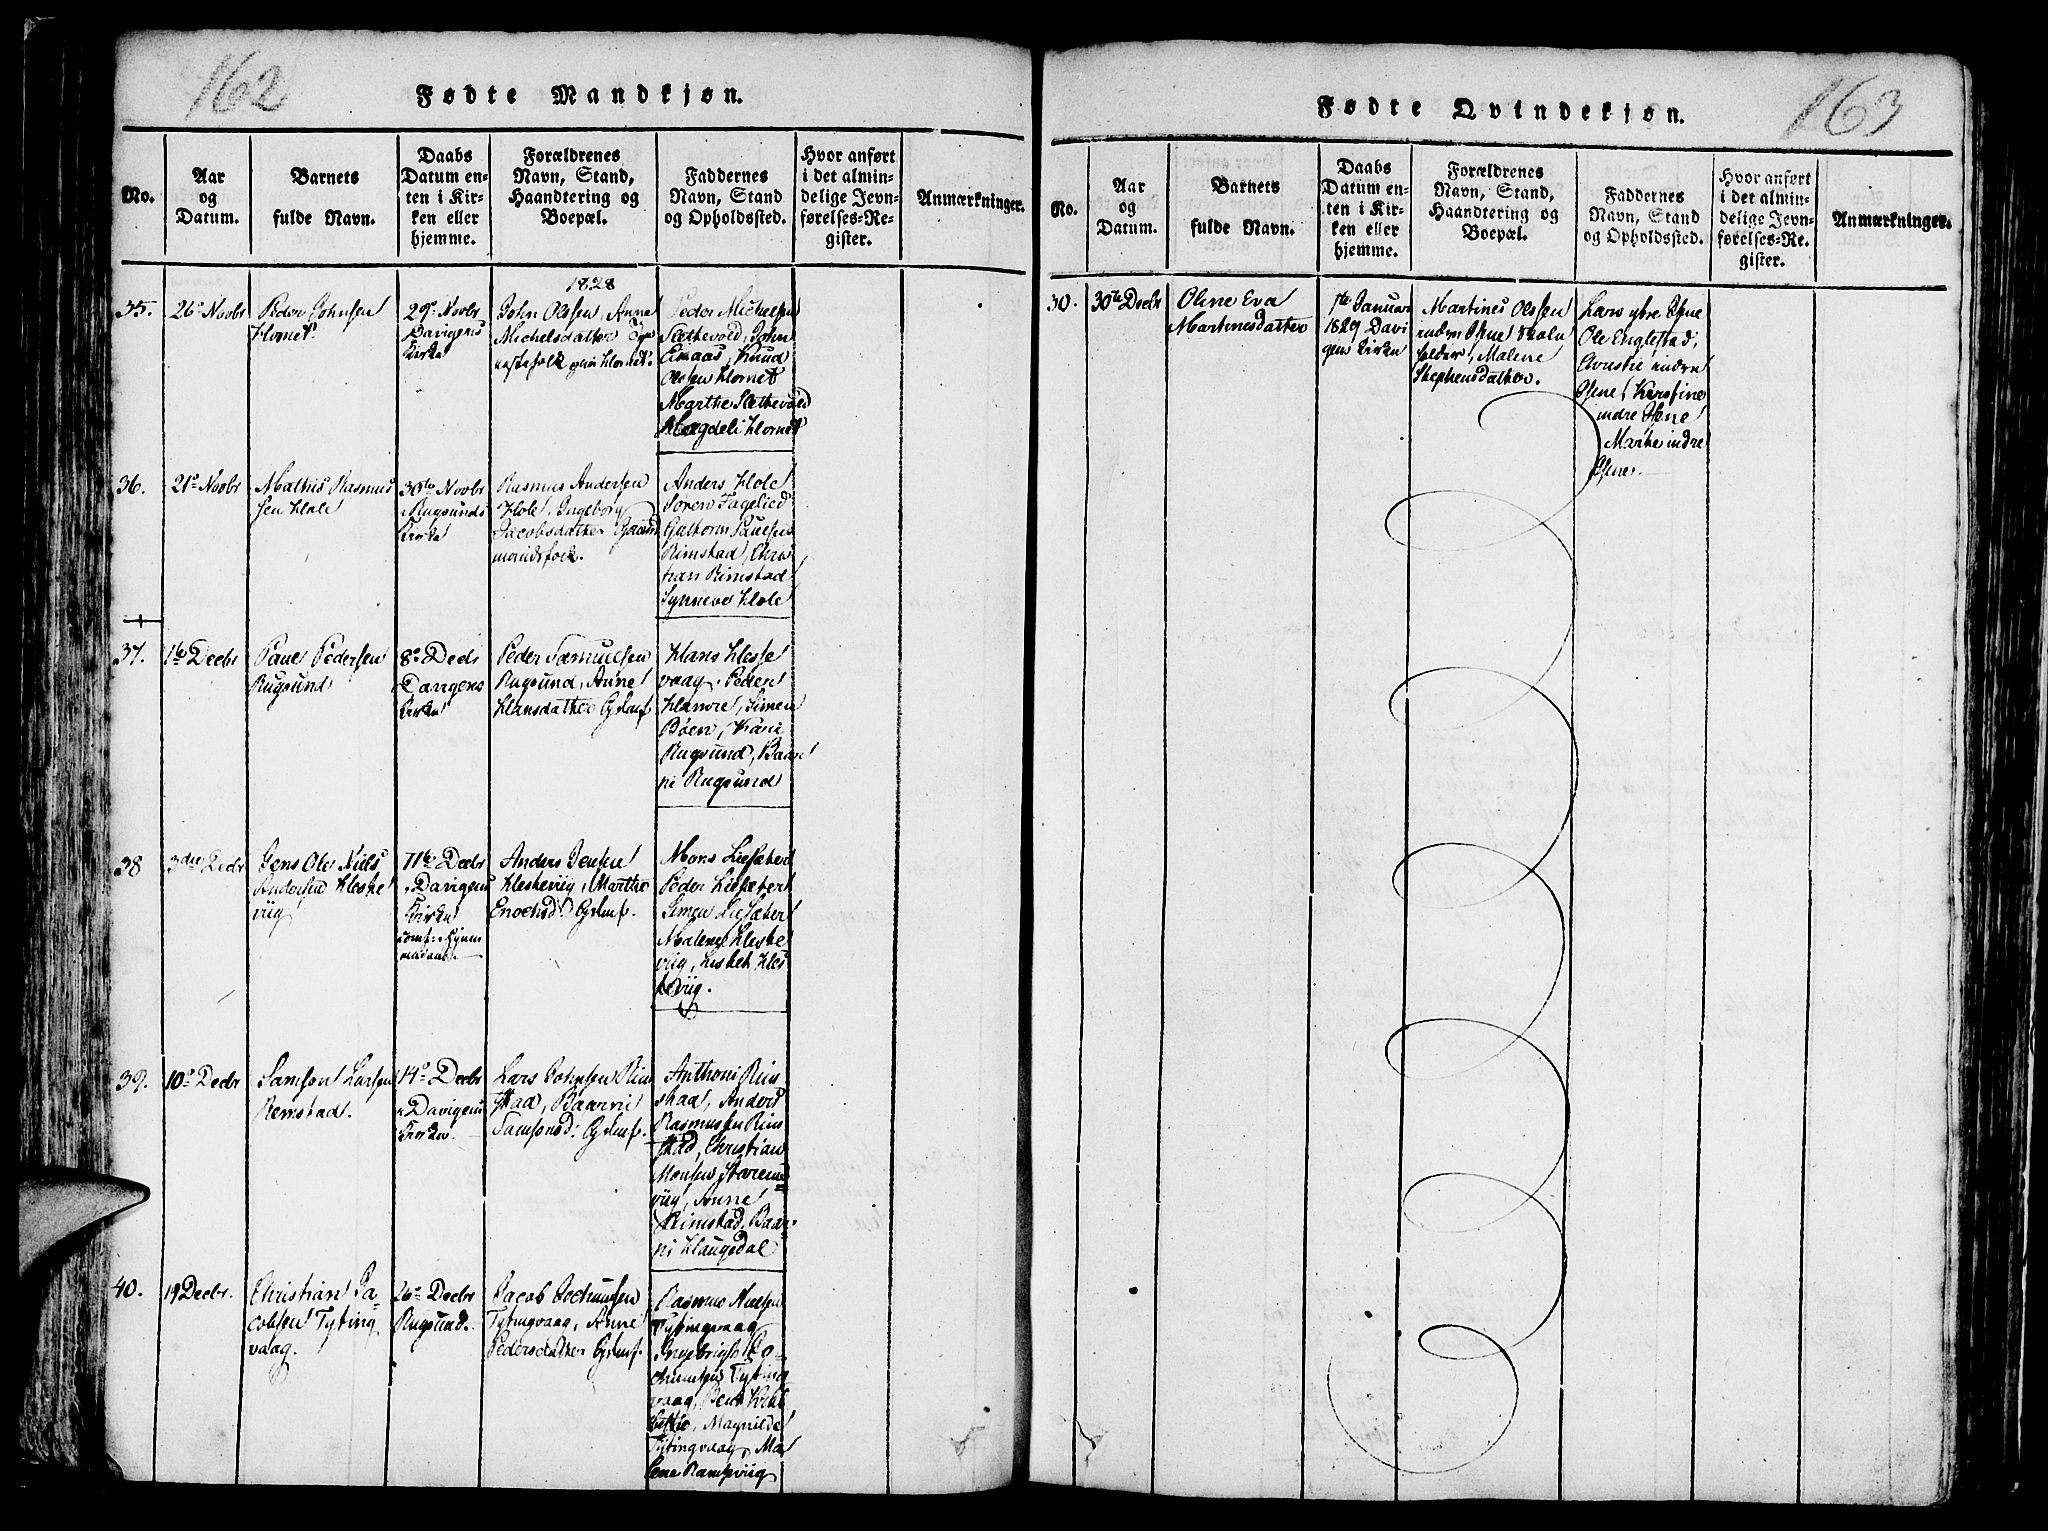 162
Fødte Mandkjøn.
No.
Aar
og
Datum.
Barnets
fulde Navn.
Daabs
Datum en-
ten i Kir-
ken eller
hjemme.
Forældrenes
Navn, Stand,
Haandtering og
Boepæl.
Faddernes
Navn, Stand
og Opholdssted.
Hvor anført
i det almin-
delige Jevn-
førelses-Re-
gister.
Anmærkninger.
1828
35.
26de Novbr
Peder Johnsen
Hornet
29de Novbr
Davigens
Kirke
John Olssen, Anna
Michelsdatter
Hornet.
Peder Michelsen
Slettevold, John
Knud
Olssen Hornet
Marthe Slettevold
Magdeli Hornet
36.
21de Novbr
Mathis Rasmus
sen Hole
30te Novbr
Rugsunds
Kirke
Rasmus Andersen
Hole, Ingeborg
Jacobsdatter Gaard
mandsfolk.
Anders Hole
Søren Fagelied
Guthorm Paulsen
Rimstad, Chris
tian Rimstad
Synneve Hole
37.
1te Decbr
Paul Pedersen
Rugsund
8de Decbr
Davigens
Kirke
Peder Samuelsen
Rugsund, Anne
Hansdatter
Hans Hesse
vaag, Peder
Simen
Bøen, Kari
Rugsund, Baar
ni Rugsund
38
3die Decbr
Jens Ole Niels
Andersen Heske
viig
Decbr
Davigens
Kirke
Anders Jensen
Heskeviig, Marthe
Enochsd:
Mons Liesæter
Peder Liesæter
Simen Liesæter
Malene Heske
viig, Lisbet Hes
keviig.
39.
10de Decbr
Samson Larsen
Remstad.
14de Decbr
Davigens
Kirke.
Lars Johnsen Rim
stad, Baarni
Samsonsd:
Anthoni Rim
stad, Anders
Rasmussen Rim
stad, Christian
Monsen
viig, Anne
Rimstad, Baar-
ni Haugsdal
40.
19 Decbr.
Christian Ja=
cobsen Tyting
vaag.
26de Decbr
Rugsund.
Jacob Jochumsen
Tytingvaag, Anne
Pedersdatter
Rasmus Nielsen
Tytingvaag
Ingebrigt Jo-
chumsen Tyting
vaag, Bent
Magnilde
Tytingvaag, Ma
lene Ramsviig
163
Fødte Qvindekjøn.
No.
Aar
og
Datum.
Barnets
fulde Navn.
Daabs
Datum en-
ten i Kir-
ken eller
hjemme.
Forældrenes
Navn, Stand,
Haandtering og
Boepæl.
Faddernes
Navn, Stand
og Opholdssted.
Hvor anført
i det almin-
delige Jevn-
førelses-Re-
gister.
Anmærkninger.
30.
30te Decbr
Oline Eva
Martinesdatter
1te Januar
1829 Davi
gens Kirke
Martines Olssen
indre Skole
holder, Malene
Stephensdatter.
Lars ytre
Ole Englestad,
indre
Kerstine
indre
Marthe indre